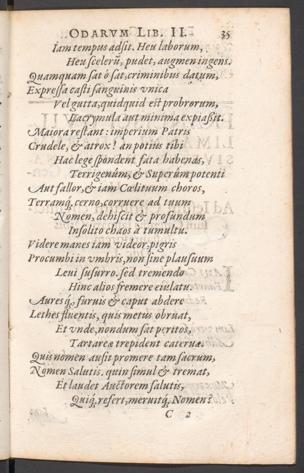 ODARVM LIB. II. 35
Iam tempus adsit. Heu laborum,
Heu scelerũ, pudet, augmen ingens.
Quamquam sat ô sat, criminibus datum,
Expressa casti sanguinis vnica
Vel gutta, quidquid est probrorum,
Lacrymula aut minima expiassit.
Maiora restant: imperium Patris
Crudele, & atrox! an potiùs tibi
Hac lege spondent fata habenas,
Terrigenûm, & Superûm potenti
Aut fallor, & iam Cœlituum choros,
Terramq́, cerno, corruere ad tuum
Nomen, dehiscit & profundum
Insolito chaos à tumultu.
Videre manes iam videor, pigris
Procumbi in vmbris, non sine plausuum
Leui susurro. sed tremendo
Hinc alios fremere eiulatu.
Auresq́, furuis & caput abdere
Lethes fluentis, quis metus obruat,
Et vnde, nondum sat peritos,
Tartarea trepident cateruæ.
Quis nomen ausit promere tam sacrum,
Nomen Salutis. quin simul & tremat,
Et laudet Auctorem salutis,
Quiq́, refert, meruitq́, Nomen?
C 2